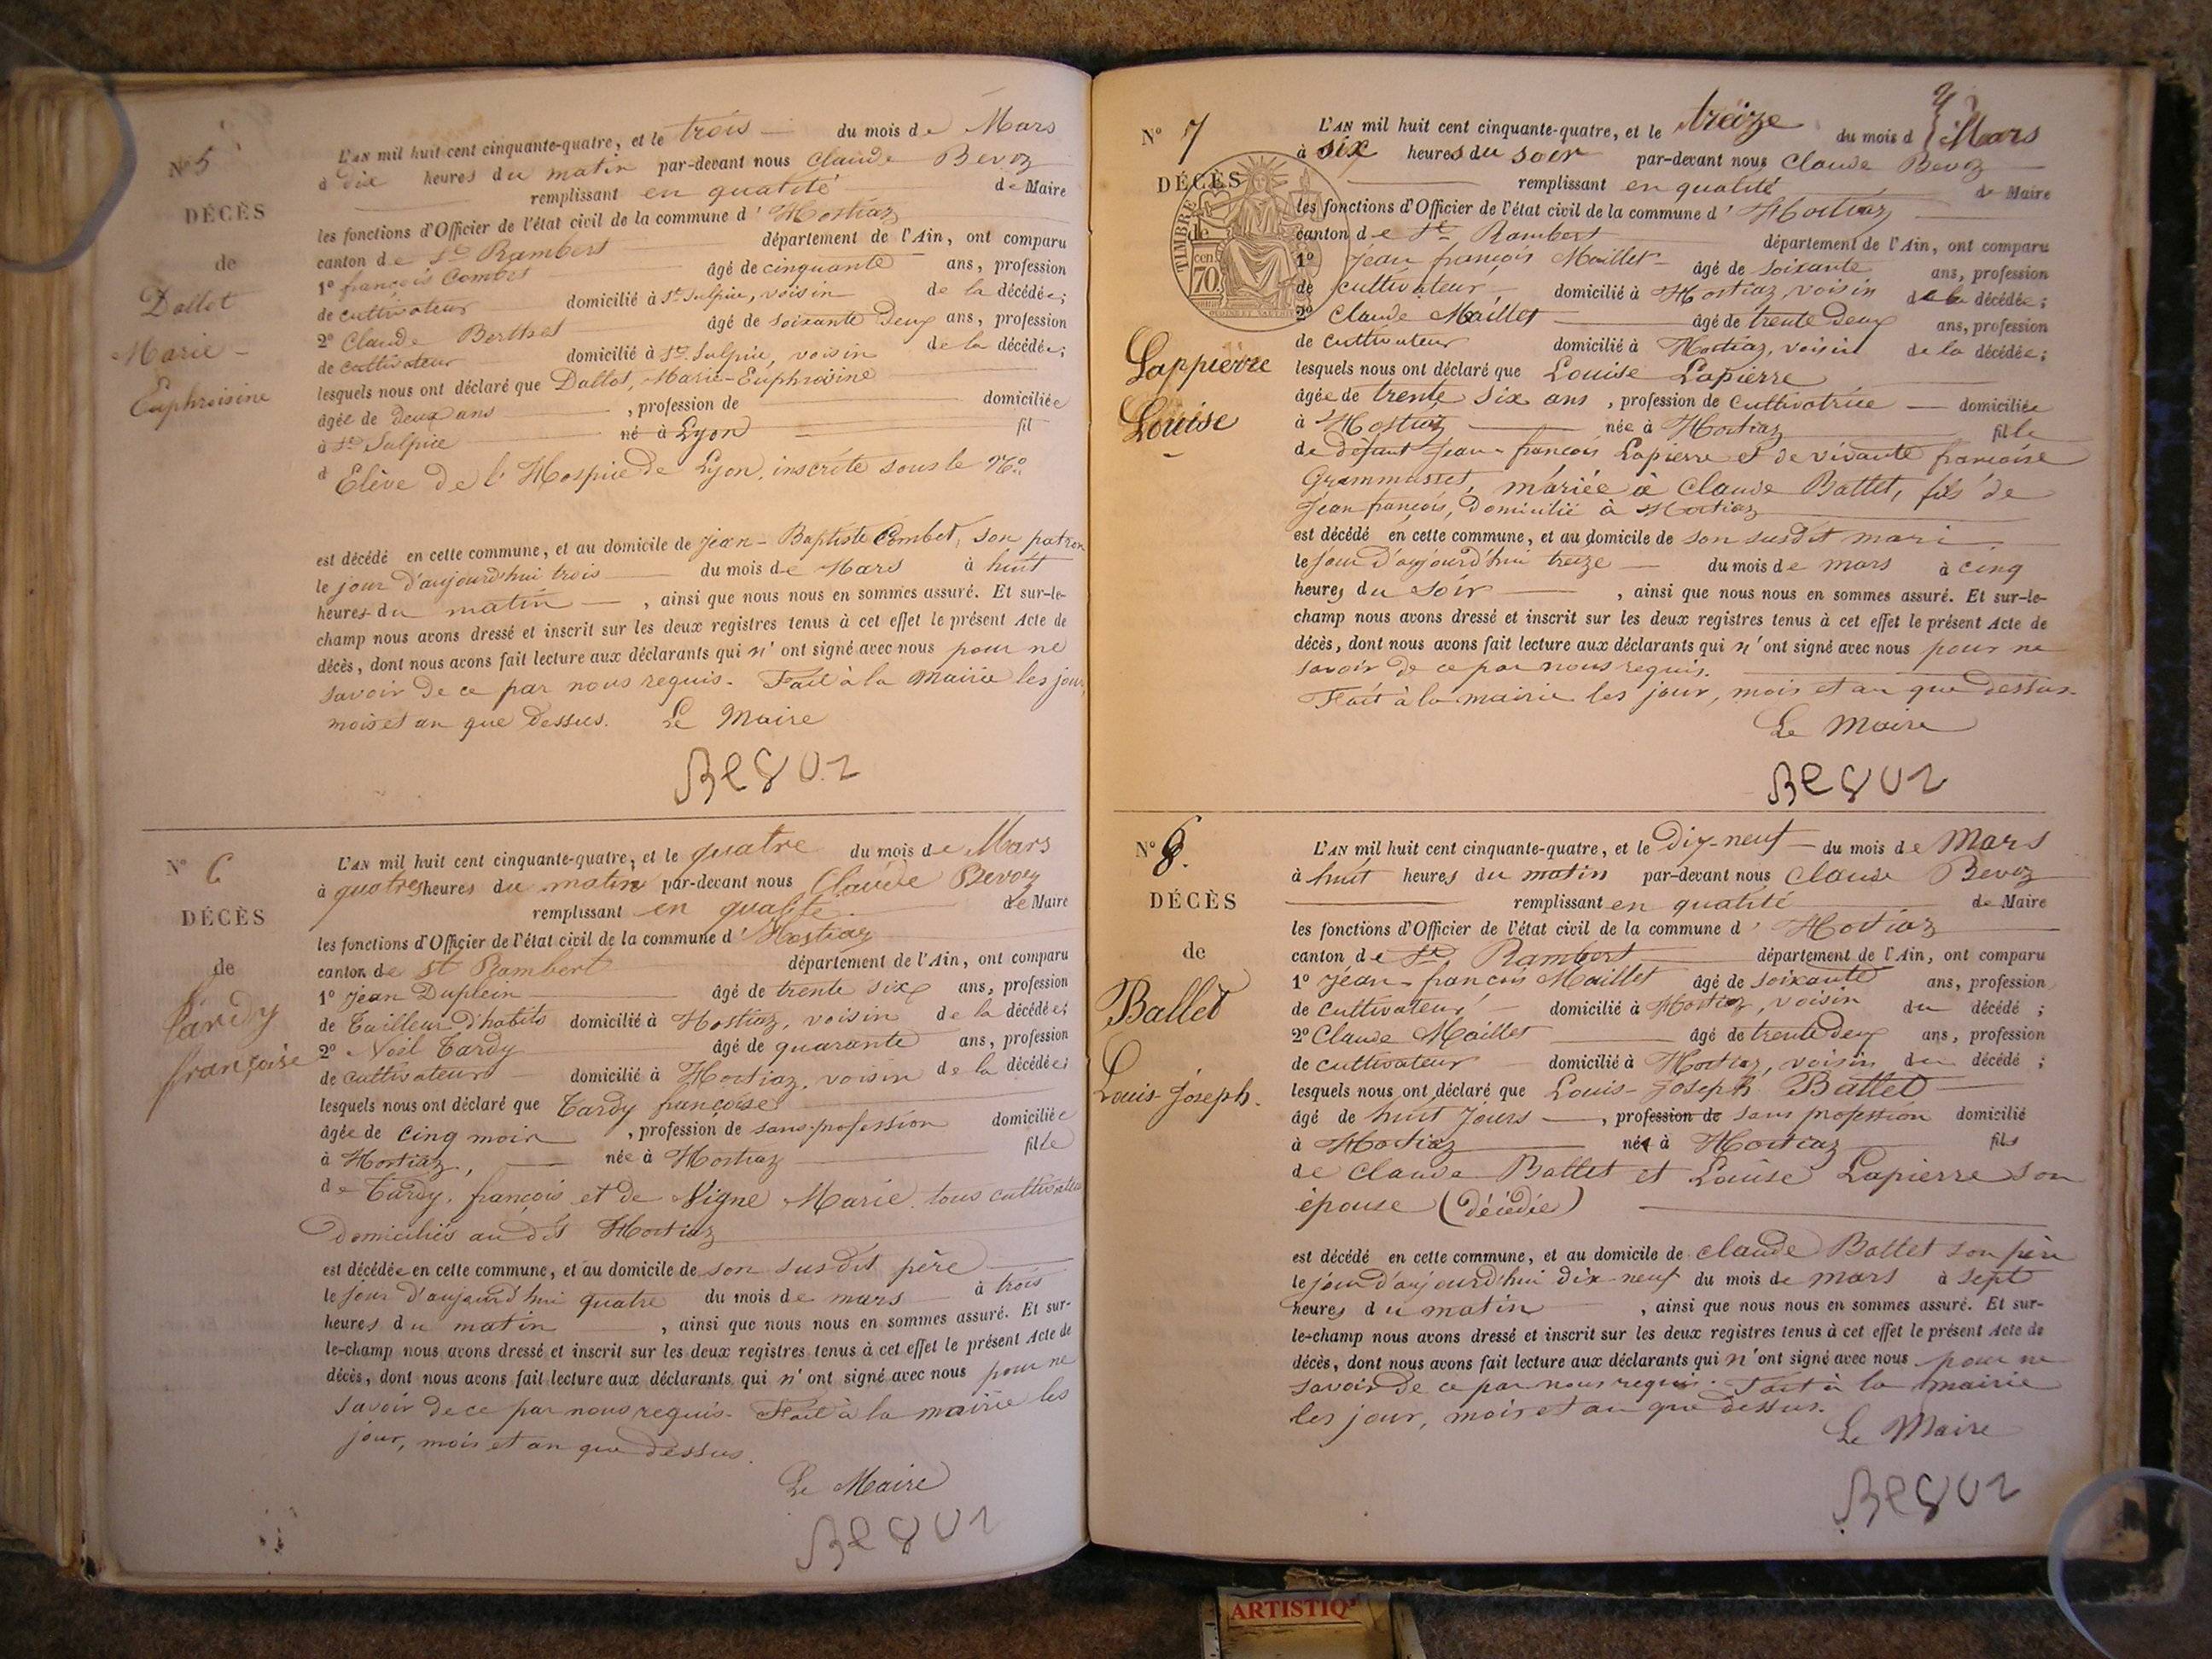 No 5
DÉCÈS
de
Dallot
Marie-
Euphroisine
L'AN mil huit cent cinquante-quatre, et le trois du mois de Mars
à dix heures du matin par-devant nous Claude Bevoz
remplissant en qualité de Maire
les fonctions d'Officier de l'état civil de la commune d'Hostiaz
canton de St Rambert département de l'Ain, ont comparu
1o françois Combet âgé de cinquante ans, profession
de cultivateur domicilié à St Sulpice, voisin de la décédée;
2o Claude Berthet âgé de soixante deux ans, profession
de cultivateur domicilié à St Sulpice, voisin de la décédée;
lesquels nous ont déclaré que Dallot, Marie-Euphroisine
âgée de deux ans , profession de domiciliée
à St Sulpice né à Lyon fil
d Elève de l'Hospice de Lyon, inscrite sous le No
est décédé en cette commune, et au domicile de Jean-Baptiste Combet, son patron
le jour d'aujourd'hui trois du mois de Mars à huit
heures du matin , ainsi que nous nous en sommes assuré. Et sur-le-
champ nous avons dressé et inscrit sur les deux registres tenus à cet effet le présent Acte de
décès, dont nous avons fait lecture aux déclarants qui n'ont signé avec nous pour ne
savoir de ce par nous requis. Fait à la Mairie les jour,
mois et an que dessus. Le Maire
BEVOZ
No 6
DÉCÈS
de
Tardy
françoise
L'AN mil huit cent cinquante-quatre, et le quatre du mois de Mars
à quatre heures du matin par-devant nous Claude Bevoz
remplissant en qualité de Maire
les fonctions d'Officier de l'état civil de la commune d'Hostiaz
canton de St Rambert département de l'Ain, ont comparu
1o Jean Duplein âgé de trente six ans, profession
de Tailleur d'habits domicilié à Hostiaz, voisin de la décédée;
2o Noël Tardy âgé de quarante ans, profession
de cultivateur domicilié à Hostiaz, voisin de la décédée;
lesquels nous ont déclaré que Tardy françoise
âgée de cinq mois , profession de sans profession domiciliée
à Hostiaz, née à Hostiaz fille
de Tardy, françois et de Vigne Marie, tous cultivateurs
Domiciliés au dit Hostiaz
est décédée en cette commune, et au domicile de son susdit père
le jour d'aujourd'hui quatre du mois de mars à trois
heures du matin , ainsi que nous nous en sommes assuré. Et sur-
le-champ nous avons dressé et inscrit sur les deux registres tenus à cet effet le présent Acte de
décès, dont nous avons fait lecture aux déclarants qui n'ont signé avec nous pour ne
savoir de ce par nous requis. Fait à la mairie les
jour, mois et an que dessus.
Le Maire
BEVOZ
No 7
DÉCÈS
TIMBRE
cen
70
Lappierre
Louise
L'AN mil huit cent cinquante-quatre, et le treize du mois d Mars
à six heures du soir par-devant nous Claude Bevoz
remplissant en qualité de Maire
les fonctions d'Officier de l'état civil de la commune d'Hostiaz
canton de St Rambert département de l'Ain, ont comparu
1o Jean françois Maillet âgé de soixante ans, profession
de cultivateur domicilié à Hostiaz, voisin de la décédée;
2o Claude Maillet âgé de trente deux ans, profession
de cultivateur domicilié à Hostiaz, voisin de la décédée;
lesquels nous ont déclaré que Louise Lapierre
âgée de trente six ans , profession de cultivatrice domiciliée
à Hostiaz née à Hostiaz fille
de défunt Jean-françois Lapierre et de vivante françoise
Grammusset, mariée à Claude Ballet, fils de
Jean françois, domicilié à Hostiaz
est décédé en cette commune, et au domicile de son susdit mari
le jour d'aujourd'hui treize du mois de mars à cinq
heures du soir , ainsi que nous nous en sommes assuré. Et sur-le-
champ nous avons dressé et inscrit sur les deux registres tenus à cet effet le présent Acte de
décès, dont nous avons fait lecture aux déclarants qui n'ont signé avec nous pour ne
savoir de ce par nous requis.
Fait à la mairie les jour, mois et an que dessus.
Le Maire
BEVOZ
No 8.
DÉCÈS
de
Ballet
Louis-Joseph.
L'AN mil huit cent cinquante-quatre, et le Dix-neuf du mois de Mars
à huit heures du matin par-devant nous Claude Bevoz
remplissant en qualité de Maire
les fonctions d'Officier de l'état civil de la commune d'Hostiaz
canton de St Rambert département de l'Ain, ont comparu
1o Jean-françois Maillet âgé de soixante ans, profession
de cultivateur domicilié à Hostiaz, voisin du décédé;
2o Claude Maillet âgé de trente deux ans, profession
de cultivateur domicilié à Hostiaz, voisin du décédé;
lesquels nous ont déclaré que Louis-Joseph Ballet
âgé de huit jours , profession de sans profession domicilié
à Hostiaz né à Hostiaz fils
de Claude Ballet et Louise Lapierre son
épouse (décédée)
est décédé en cette commune, et au domicile de Claude Ballet son père
le jour d'aujourd'hui dix-neuf du mois de mars à sept
heures du matin , ainsi que nous nous en sommes assuré. Et sur-
le-champ nous avons dressé et inscrit sur les deux registres tenus à cet effet le présent Acte de
décès, dont nous avons fait lecture aux déclarants qui n'ont signé avec nous pour ne
savoir de ce par nous requis. Fait à la mairie
les jour, mois et an que dessus.
Le Maire
BEVOZ
ARTISTIQ